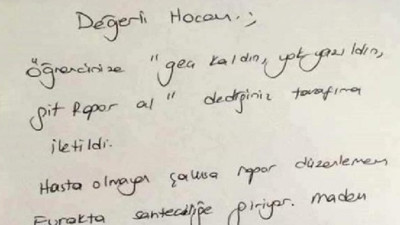 Değerli Hocam;
Öğrencinize "geç kaldın, yok yazıldın,
git Rapor al" dediğiniz tarafıma
iletildi.
Hasta olmayan şahısa rapor düzenlemem
Evrakta sahteciliğe giriyor. madem